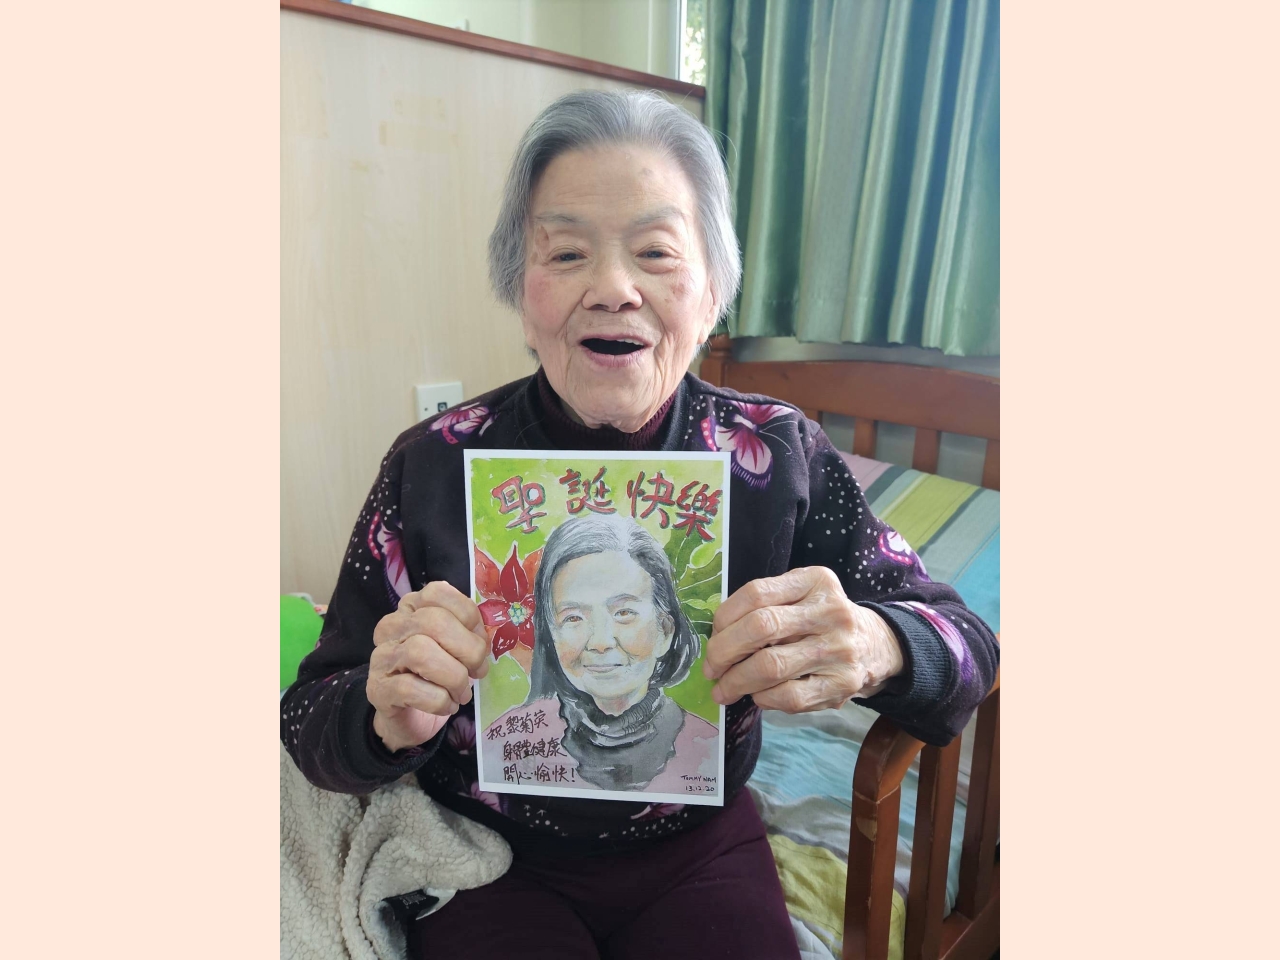 聖誕快樂
祝黎菊英
身體健康
開心愉快!
TOMMY NAM
13.12.20